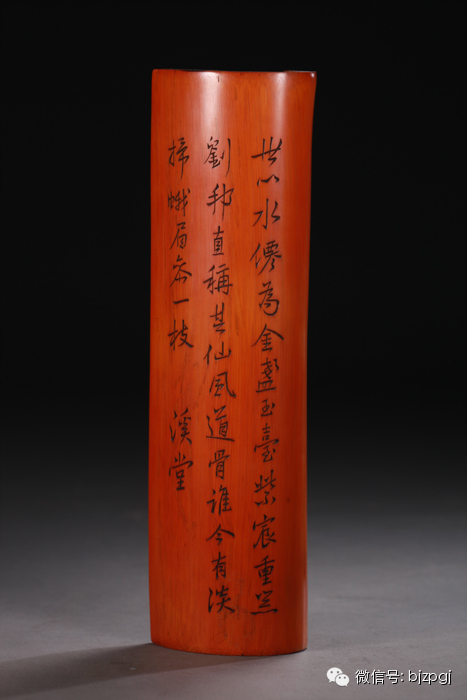 世以水僊為金盞玉臺紫宸重
劉邦直稱其仙風道骨誰今有淡
掃蛾眉一枝 溪堂
微信号: bjzpgj